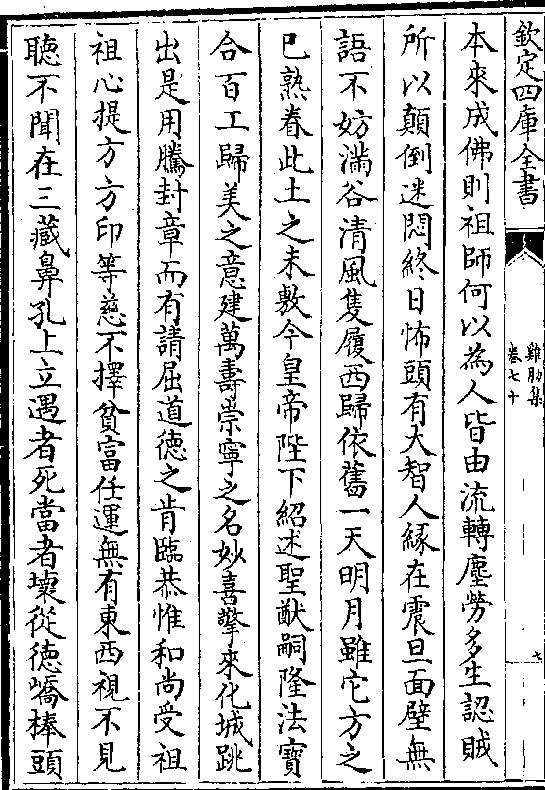 欽定四庫全書
雞肋集
卷七十
七
本來成佛則祖師何以為人皆由流轉塵勞多生認賊
所以顛倒迷悶終日怖頭有大智人緣在震旦面壁無
語不妨滿谷清風隻履西歸依舊一天明月雖它方之
已熟眷此土之未敷今皇帝陛下紹述聖猷嗣隆法寶
合百工歸美之意建萬壽崇寧之名妙喜擎來化城跳
出是用騰封章而有請屈道德之肯臨恭惟和尚受祖
祖心提方方印等慈不擇貧富任運無有東西視不見
聽不聞在三藏鼻孔上立遇者死當者壞從德嶠棒頭